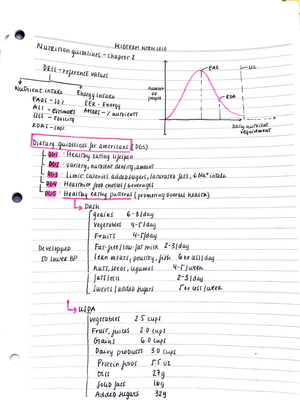 MIDTERM NTRN 1010
Nutrition guidelines - Chapter 2
DRIS - reference values
Nutrient intake
Energy intake
EARS - 50%
EER - Energy
AIs - Estimates
AMDRS - % nutrients
ULS - toxicity
RDAS - 100%
number of people
EAR
UL
RDA
Daily nutrient requirement
Dietary guidelines for americans (DGS)
DG1: Healthy eating lifespan
DG2: variety, nutrient density, amount
DG3: Limit calories added sugars, saturated fats, & Na+ intake
DG4: Healthier food choices/beverages
DG5: Healthy eating patterns (promoting overall health)
Dash
grains 6-8/day
Vegetables 4-5/day
Fruits 4-5/day
Developped to lower BP
Fat-free/low-fat milk 2-3/day
Lean meats, poultry, fish 6 or less/day
Nuts, seeds, legumes 4-5/week
fats/oils 2-3/day
Sweets/added sugars 5 or less/week
USDA
Vegetables 2.5 cups
Fruit, juices 2.0 cups
Grains 6.0 cups
Dairy products 3.0 cups
Protein foods 5.5 oz
Oils 27g
Solid fats 16g
Added sugars 32g